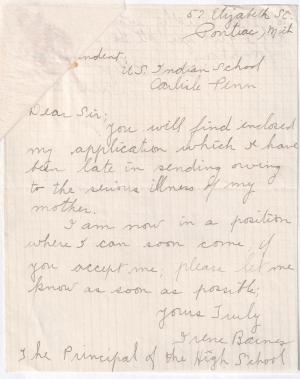 57 Elizabeth St.
Pontiac, Mich
ndent,
U.S. Indian School
Carlile Penn
Dear Sir;
You will find enclosed
my application which I have
been late in sending owing
to the serious illness of my
mother.
I am now in a position
where I can soon come, if
you accept me, please let me
know as soon as possible;
Yours Truly
Irene Barnes
The Principal of the High School